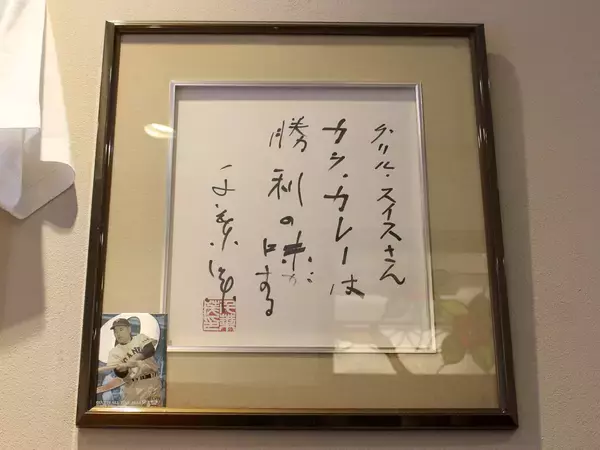 グリル・スイスさん
カツ・カレーは
勝利の味がする
千葉茂